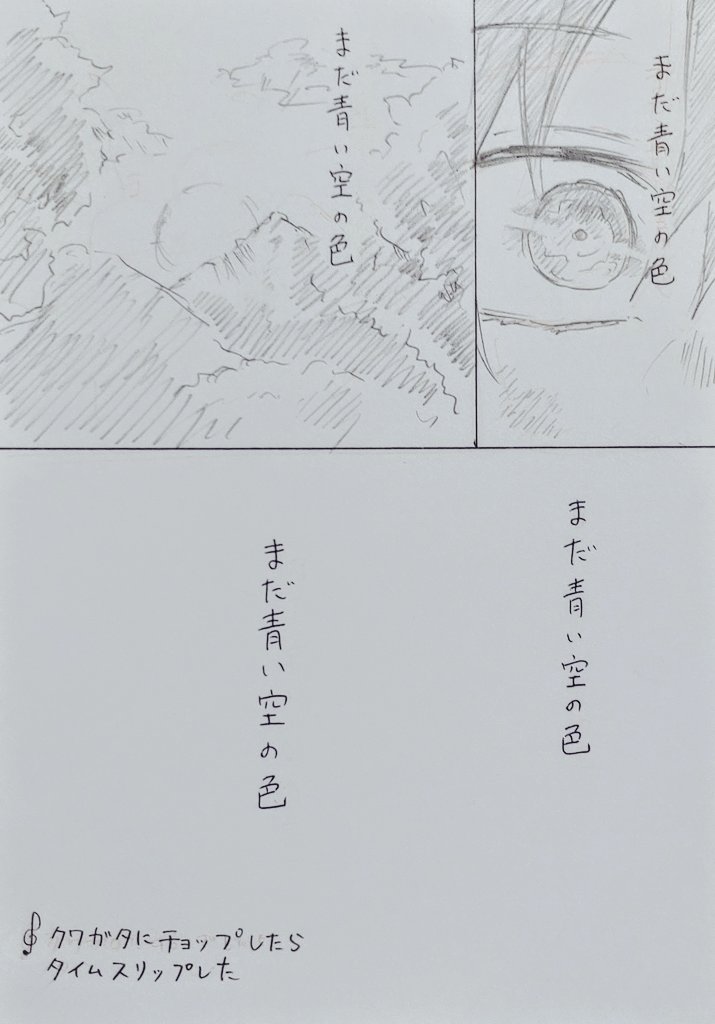 まだ青い空の色
まだ青い空の色
まだ青い空の色
まだ青い空の色
クワガタにチョップしたら
タイムスリップした